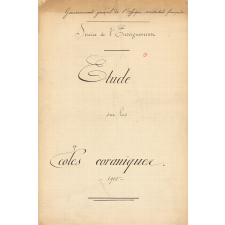 Gouvernement général de l'Afrique occidentale française
Service de l'Enseignement
Etude
sur les
Ecoles coraniques